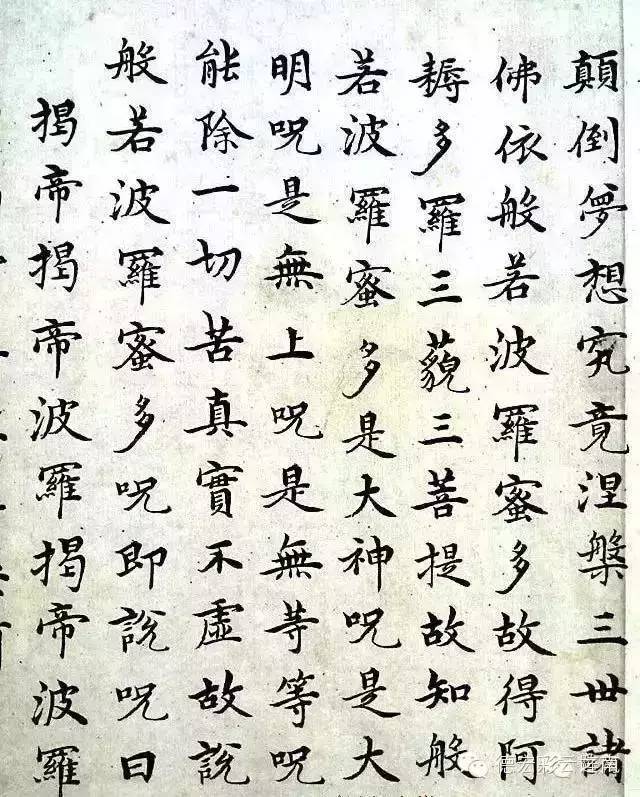 顛倒夢想究竟涅槃三世諸
佛依般若波羅蜜多故得阿
耨多羅三藐三菩提故知般
若波羅蜜多是大神呪是大
明呪是無上呪是無等等呪
能除一切苦真實不虛故說
般若波羅蜜多呪即說呪曰
揭帝揭帝波羅揭帝波羅
德宏彩云南